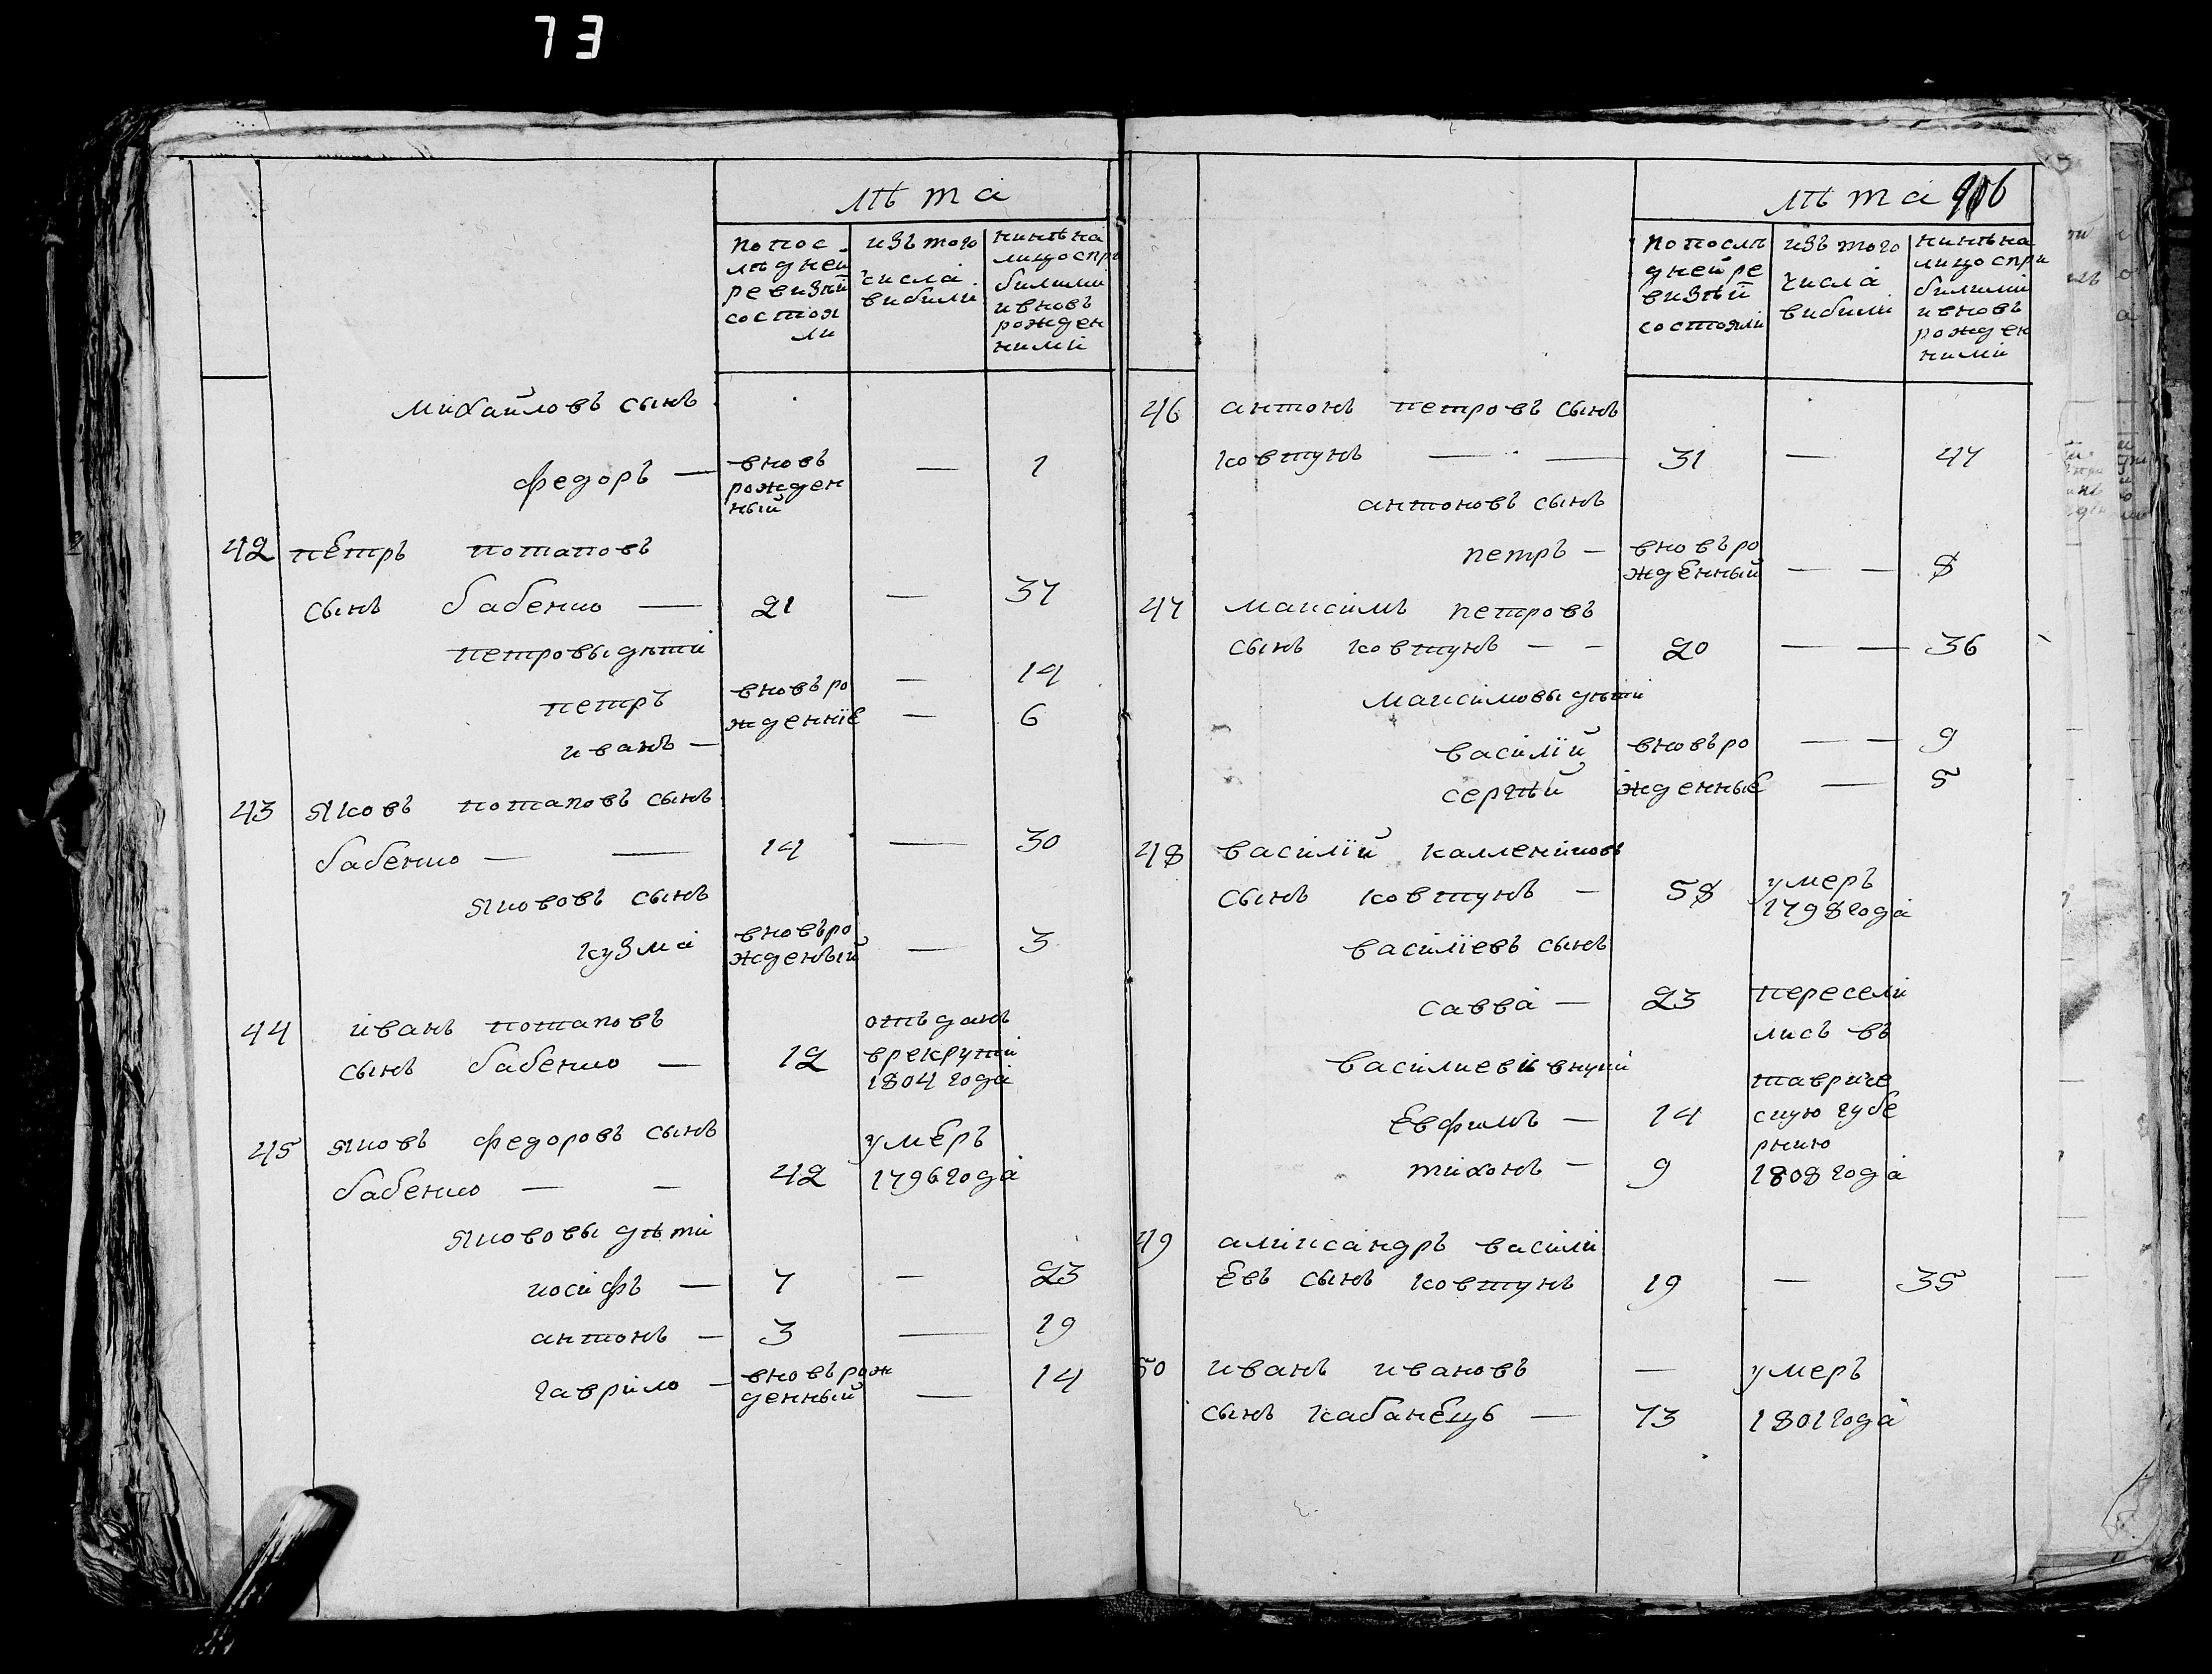 73
лѣта
попос
лѣдней
ревизѣй
состоя
ли
изъ того
числа
вибили
нинѣ на
лицо спри
билими
и вновь
рожден
ними
Михайловъ сынъ
федоръ — вновь рожден ный — 1
42 пЕтръ потаповъ
сынъ бабенко — 21 — 37
петровы дѣти
петръ вновъ ро — 14
иванъ — жденніе — 6
43 яковъ потаповъ сынъ
бабенко — — 14 — 30
якововъ сынъ
кузма вновъ ро жденъій — 3
44 іванъ потаповъ
сынъ бабенко — 12 отъданъ врекрути 1804 года
45 яковъ федоровъ сынъ умЕръ
бабенко — — 42 1796 года
яковови дѣти
иосифъ — 7 — 23
антонъ — 3 — 19
гаврило — вновъ рож денный — 14
лѣта 906
по послѣ
дней ре
визѣй
состояли
изъ того
числа
вибили
нинѣ на
лицо спри
билими
и вновь
рожден
ними
46 антонъ петровъ сынъ
ковтунъ — — 31 — 47
антоновъ сынъ
петръ — вновъ ро жденный — — 8
47 максимъ петровъ
сынъ ковтунъ — — 20 — — 36
максимовы дѣти
василій вновъ ро — — 9
сергѣй жденныЕ — 5
48 василій калленіковъ
сынъ ковтунъ — 58 умеръ 1798 года
василіевъ сынъ
савва — 23 пересели
лись въ
василиеви внуки
тавриче
Евфимъ — 14 скую губе
рнию
тихонъ — 9 1808 года
49 алікса́ндръ васили
Евъ сынъ ковтунъ 19 — 35
50 иванъ ивановъ — умеръ
сынъ кабанЕцъ — 73 1801 года